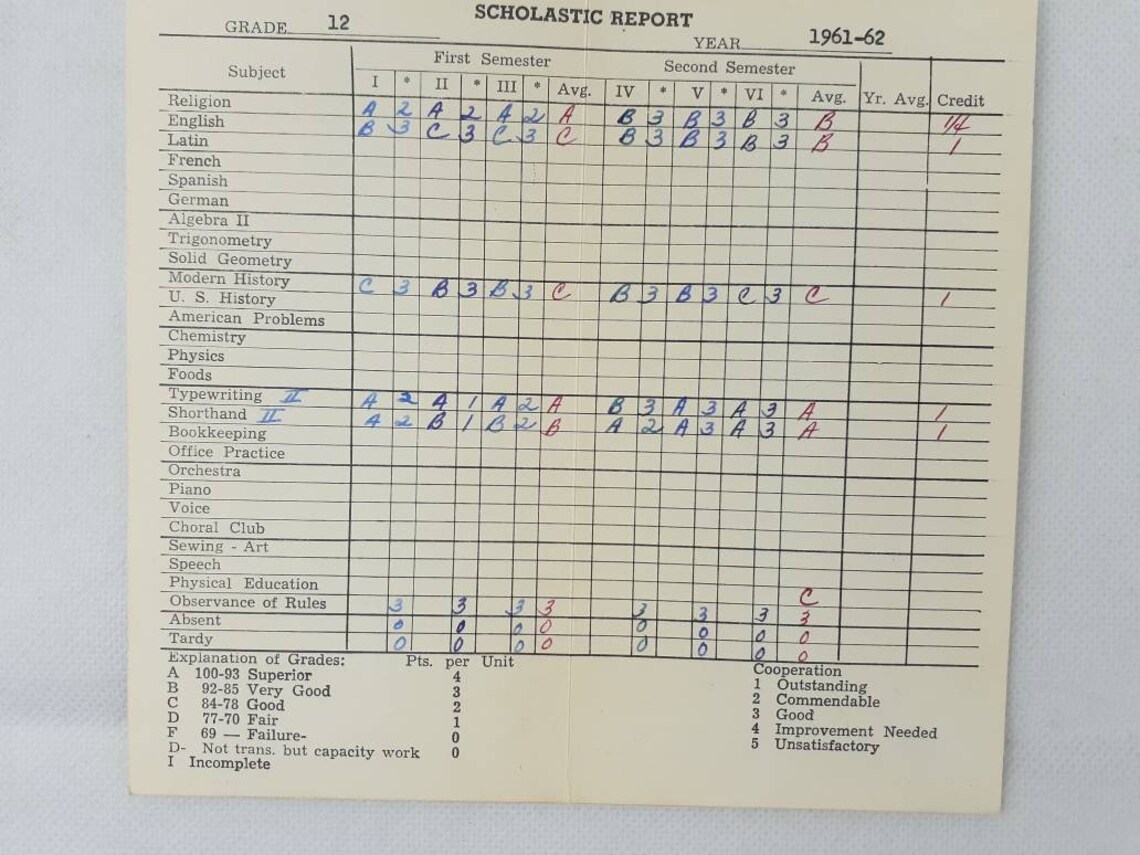 SCHOLASTIC REPORT
GRADE 12 YEAR 1961-62
First Semester Second Semester
Subject I * II * III * Avg. IV * V * VI * Avg. Yr. Avg. Credit
Religion A 2 A 2 A 2 A B 3 B 3 B 3 B 1/4
English B 3 C 3 C 3 C B 3 B 3 B 3 B 1
Latin
French
Spanish
German
Algebra II
Trigonometry
Solid Geometry
Modern History C 3 B 3 B 3 C B 3 B 3 C 3 C 1
U. S. History
American Problems
Chemistry
Physics
Foods
Typewriting II A 2 A 1 A 2 A B 3 A 3 A 3 A 1
Shorthand II A 2 B 1 B 2 B A 2 A 3 A 3 A 1
Bookkeeping
Office Practice
Orchestra
Piano
Voice
Choral Club
Sewing - Art
Speech
Physical Education C
Observance of Rules 3 3 3 3 3 3 3 3
Absent 0 0 0 0 0 0 0 0
Tardy 0 0 0 0 0 0 0 0
Explanation of Grades: Pts. per Unit Cooperation
A 100-93 Superior 4 1 Outstanding
B 92-85 Very Good 3 2 Commendable
C 84-78 Good 2 3 Good
D 77-70 Fair 1 4 Improvement Needed
F 69 — Failure- 0 5 Unsatisfactory
D- Not trans. but capacity work 0
I Incomplete